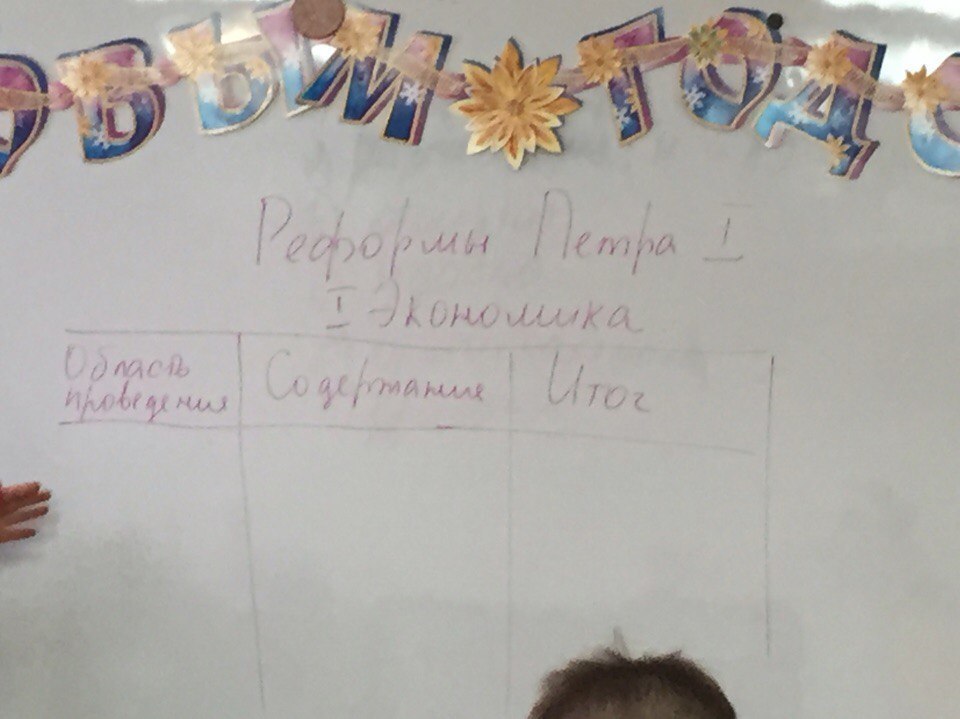 ОВЫМ ГОДО
Реформы Петра I
I Экономика
Область
проведения
Содержание
Итог